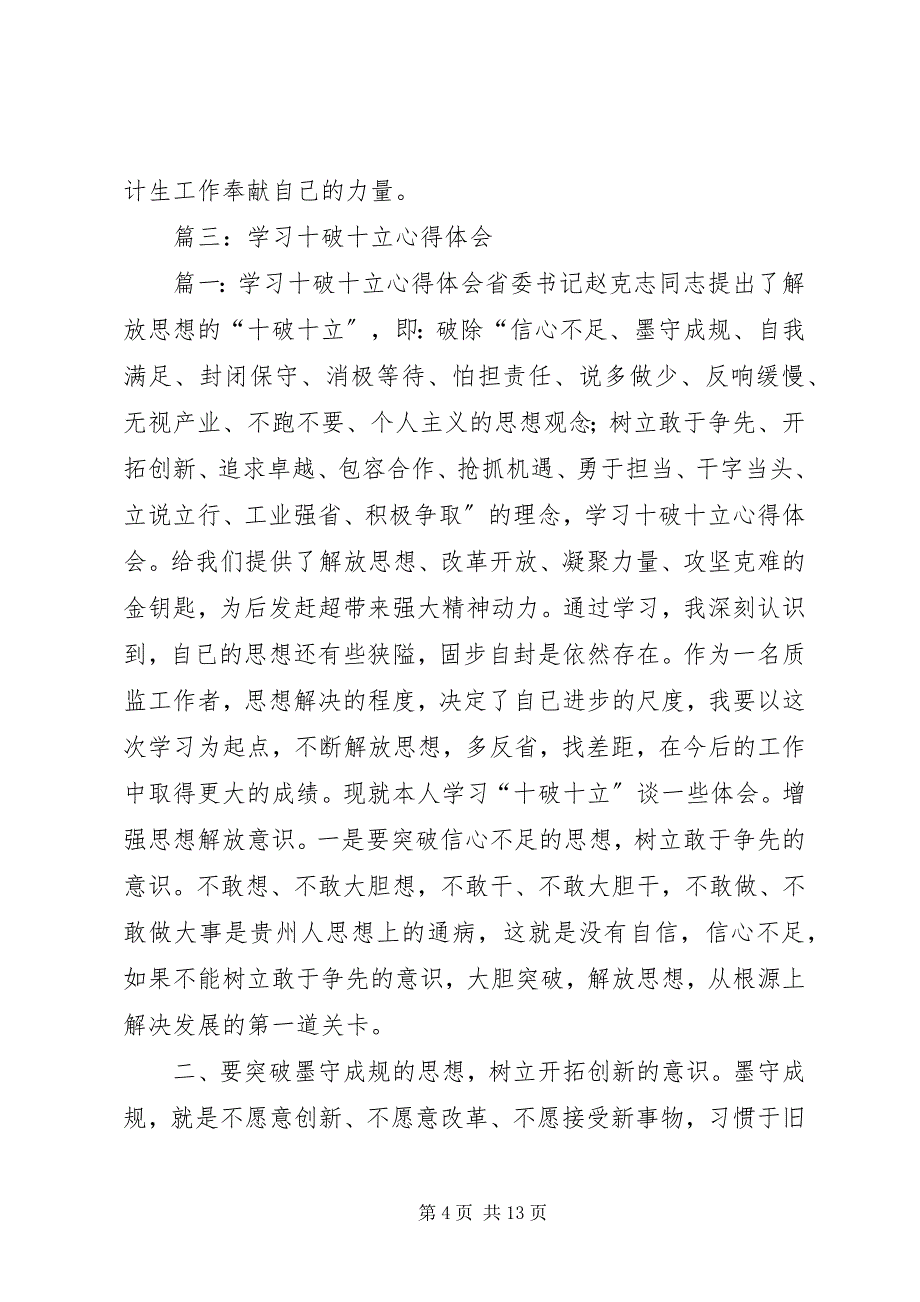 计生工作奉献自己的力量。
篇三：学习十破十立心得体会
篇一：学习十破十立心得体会省委书记赵克志同志提出了解
放思想的“十破十立〞，即：破除“信心不足、墨守成规、自我
满足、封闭保守、消极等待、怕担责任、说多做少、反响缓慢、
无视产业、不跑不要、个人主义的思想观念；树立敢于争先、开
拓创新、追求卓越、包容合作、抢抓机遇、勇于担当、干字当头、
立说立行、工业强省、积极争取〞的理念，学习十破十立心得体
会。给我们提供了解放思想、改革开放、凝聚力量、攻坚克难的
金钥匙，为后发赶超带来强大精神动力。通过学习，我深刻认识
到，自已的思想还有些狭隘，固步自封是依然存在。作为一名质
监工作者，思想解决的程度，决定了自已进步的尺度，我要以这
次学习为起点，不断解放思想，多反省，找差距，在今后的工作
中取得更大的成绩。现就本人学习“十破十立〞谈一些体会。增
强思想解放意识。一是要突破信心不足的思想，树立敢于争先的
意识。不敢想、不敢大胆想，不敢干、不敢大胆干，不敢做、不
敢做大事是贵州人思想上的通病，这就是没有自信，信心不足，
如果不能树立敢于争先的意识，大胆突破，解放思想，从根源上
解决发展的第一道关卡。
二、要突破墨守成规的思想，树立开拓创新的意识。墨守成
规，就是不愿意创新、不愿意改革、不愿接受新事物，习惯于旧
第 4 页 共 13 页